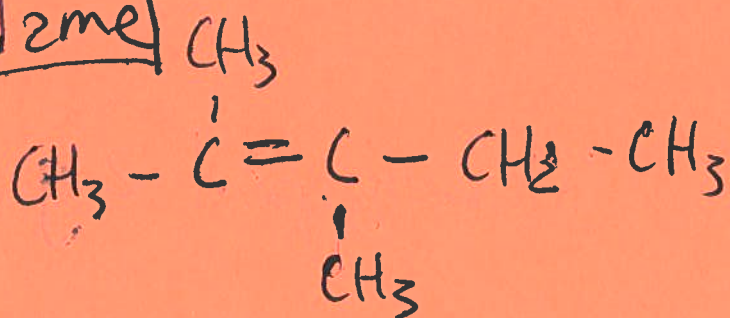 2me
CH3
CH3 - C = C - CH2 - CH3
CH3